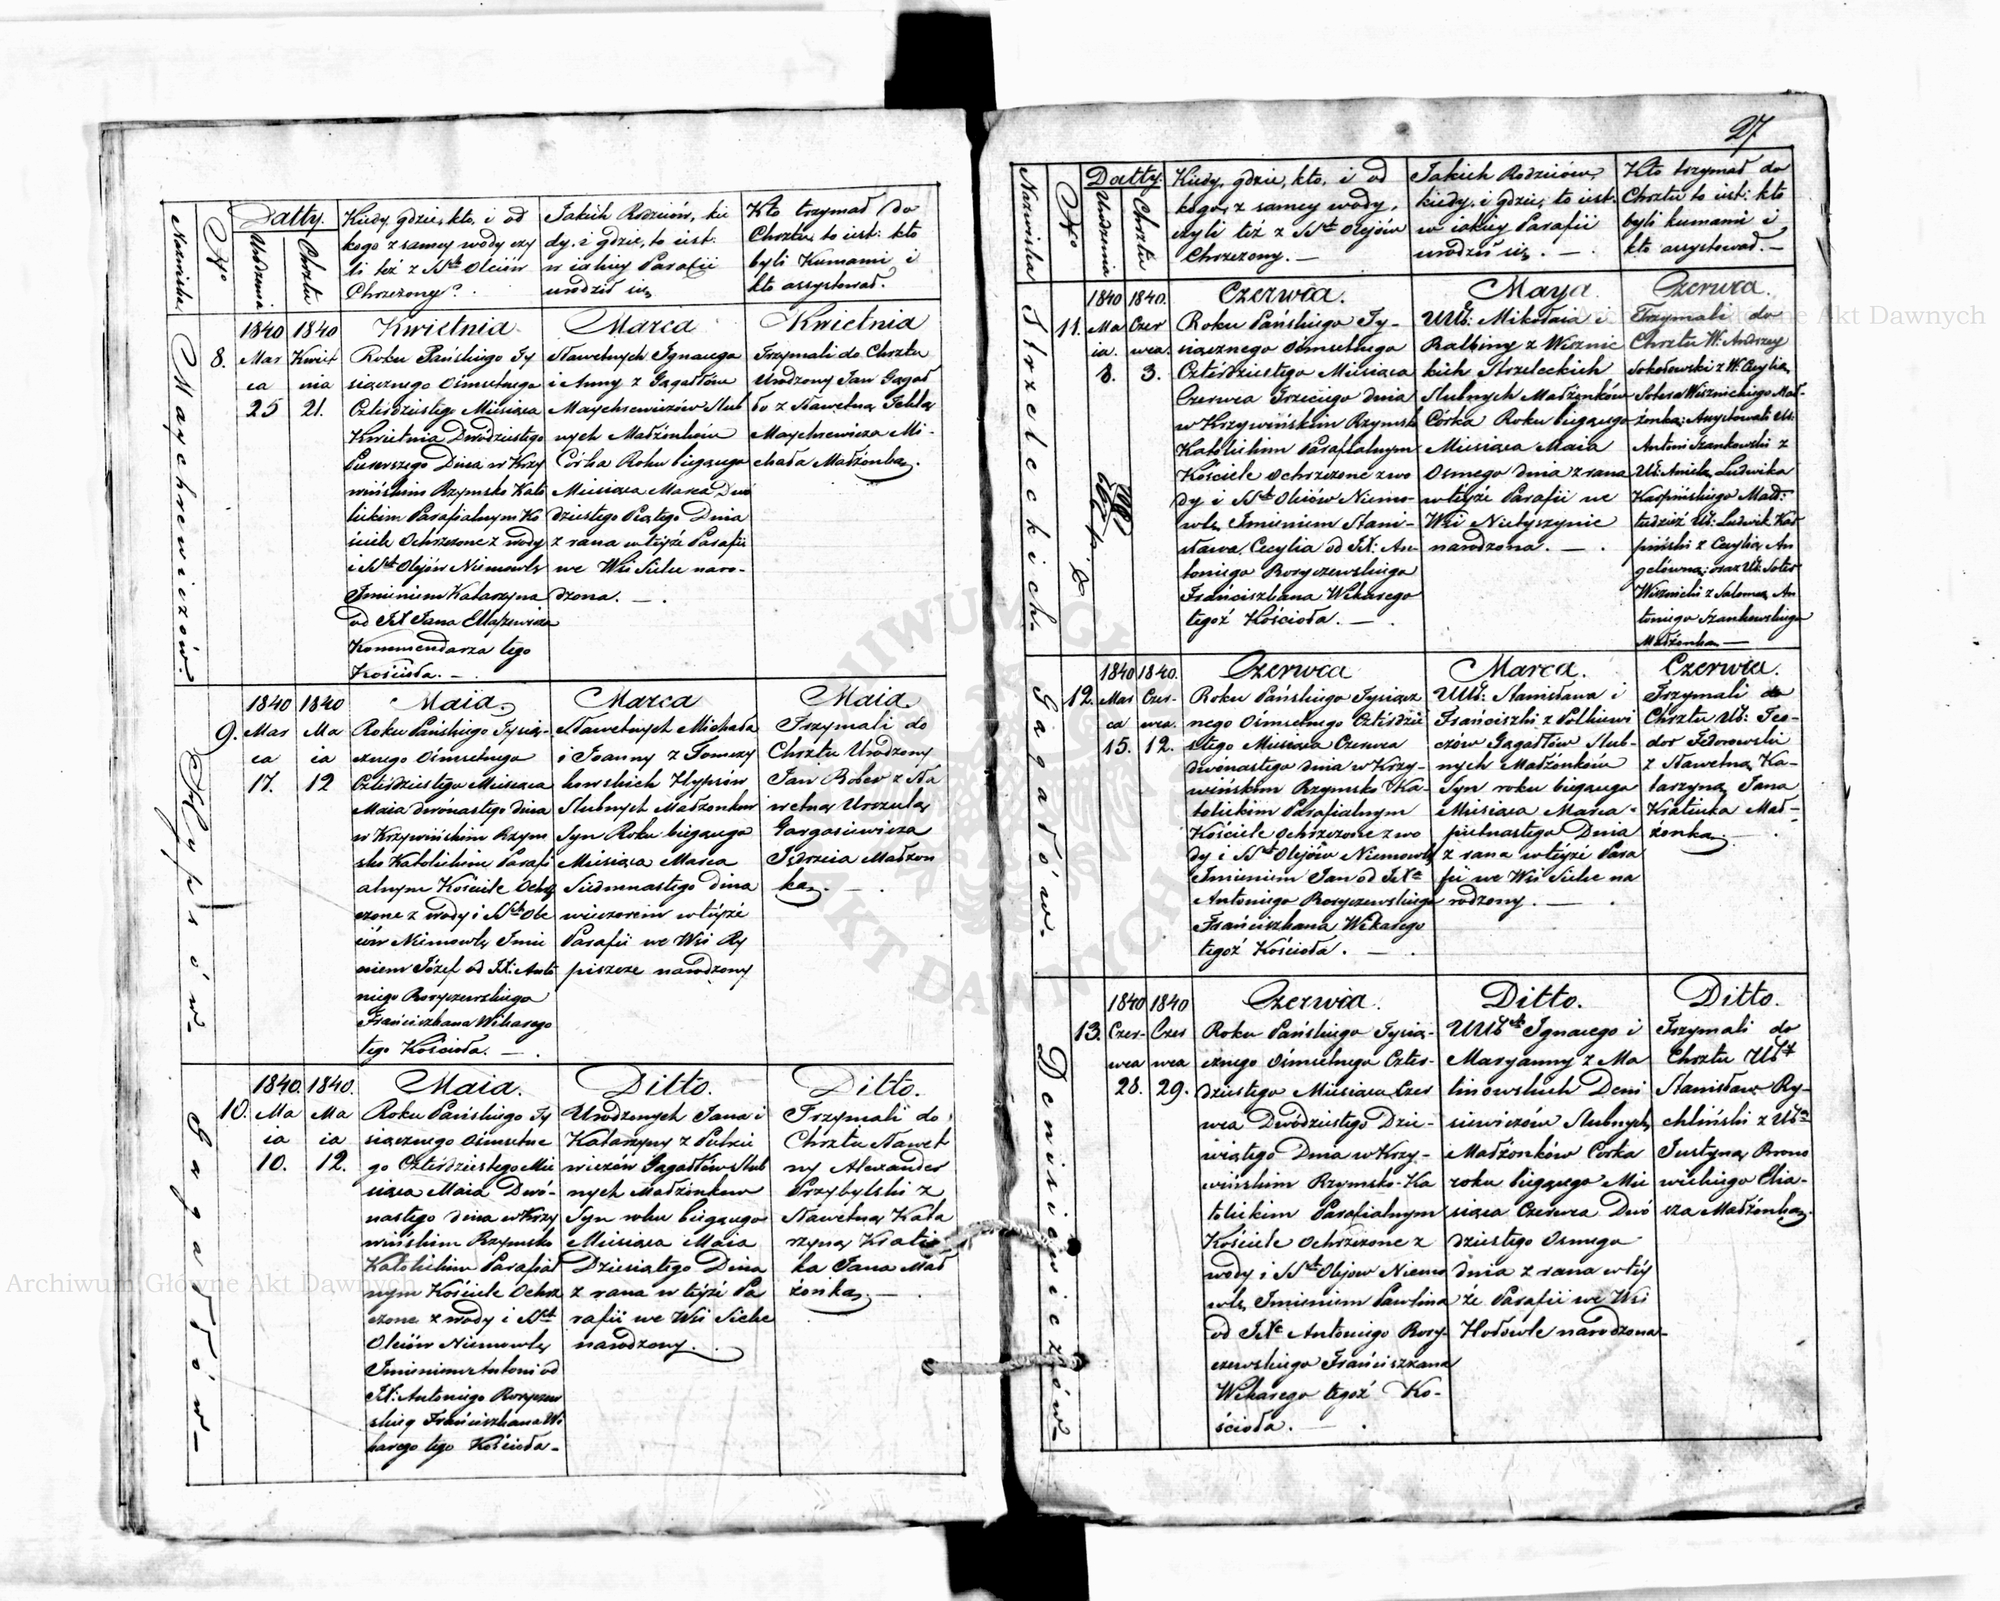 Nazwiska
No
Datty.
Urodzenia
Chrztu
Kiedy, gdzie, kto, i od
kogo z samey wody czy
li też z SSch Oleiów
Chrzczony?
Jakich Rodziców, kie
dy, i gdzie, to iest:
w iakiey Parafii
urodził się
Kto trzymał do
Chrztu, to iest: kto
byli Kumami i
kto assystował.
Maychrewiczów.
8.
1840
Mar
ca
25
1840
Kwiet
nia
21.
Kwietnia
Roku Pańskiego Ty
siącznego Ośmsetnego
Czterdziestego Miesiąca
Kwietnia Dwódziestego
Pierwszego Dnia w Krzy
wińskim Rzymsko Kato
lickim Parafialnym Ko
ściele Ochrzczone z wody
i SSch Olejów Niemowlę
Imieniem Katarzyna
od JX Jana
Kommendarza tego
Kościoła. —
Marca
Sławetnych Ignacego
i Anny z Gagałłów
Maychrewiczów Slub
nych Małżonków
Córka Roku bieżącego
Miesiąca Marca Dwó
dziestego Piątego Dnia
z rana w teyże Parafii
we Wsi Sielce naro-
dzona. —
Kwietnia
Trzymali do Chrztu
Urodzony Jan Gagał
ło z Sławetną Teklą
Maychrewicza Mi-
chała Małżonką.
Hypsów.
9.
1840
Mar
ca
17.
1840
Ma
ia
12
Maia.
Roku Pańskiego Tysią-
cznego Ośmsetnego
Czterdziestego Miesiąca
Maia dwónastego dnia
w Krzywińskim Rzym
sko Katolickim Parafi
alnym Kościele Ochrz
czone z wody i SSch Ole
iów Niemowlę Imie
niem Józef od JX: Anto
niego Roryczewskiego
Franciszkana Wikarego
tego Kościoła. —
Marca
Sławetnych Michała
i Joanny z Tomczy
kowskich Hypsów
Slubnych Małżonków
Syn Roku bieżącego
Miesiąca Marca
Siedmnastego dnia
wieczorem w teyże
Parafii we Wsi Ry
piszcze narodzony
Maia.
Trzymali do
Chrztu Urodzony
Jan Bober z Sła
wetną Urszulą
Gargasiewicza
Jędrzeia Małżon
ką. —
Gagałłów—
10.
1840.
Ma
ia
10.
1840.
Ma
ia
12.
Maia.
Roku Pańskiego Ty
siącznego Ośmsetne
go Czterdziestego Mie
siąca Maia Dwó-
nastego dnia w Krzy
wińskim Rzymsko
Katolickim Parafial
nym Kościele Ochrz
czone z wody i SSch
Oleiów Niemowlę
Imieniem Antoni od
JX: Antoniego Roryczew
skieg Franciszkana Wi
karego tego Kościoła—
Ditto.
Urodzonych Jana i
Katarzyny z Putkie
wiczów Gagałłów Slub
nych Małżonków
Syn roku bieżącego
Miesiąca Maia
Dziesiątego Dnia
z rana w teyże Pa
rafii we Wsi Sielce
narodzony.
Ditto.
Trzymali do
Chrztu Sławet
ny Alexander
Przybylski z
Sławetną Kata
rzyną Kratiu
ka Jana Mał
żonką. —
27
Nazwiska
No
Datty.
Urodzenia
Chrztu
Kiedy, gdzie, kto, i od
kogo, z samey wody,
czyli też z SSch Olejów
Chrzczony. —
Jakich Rodziców,
kiedy, i gdzie, to iest:
w iakiey Parafii
urodził się. —
Kto trzymał do
Chrztu to iest: kto
byli kumami i
kto assystował. —
Strzeleckich.
11.
1840
Ma
ia.
8.
1840.
Czer
wca.
3.
Czerwca.
Roku Pańskiego Ty-
siącznego Ośmsetnego
Czterdziestego Miesiąca
Czerwca Trzeciego dnia
w Krzywińskim Rzymsk
Katolickim Parafialnym
Kościele Ochrzczone z wo
dy i SSch Oleiów Niemo-
wlę Imieniem Stani-
sława, Cecylia od JX: An-
toniego Roryczewskiego
Franciszkana Wikarego
tegoż Kościoła. —
Maya.
UUb: Mikołaia i
Balbiny z Wisznic
kich Strzeleckich
Slubnych Małżonków
Córka Roku bieżącego
Miesiąca Maia
Osmego dnia z rana
w teyże Parafii we
Wsi Nietyszynie
narodzona. —
Czerwca.
Trzymali do
Chrztu W: Andrzey
Sokołowski z W. Cecylią
Sotera Wisznickiego Mał-
żonką; Assystowali Ub:
Antoni Szankowski z
Ub: Anielą Ludwika
Karpińskiego Małż:
tudzież Ub: Ludwik Kar
piński z Cecylią An
gelówną; oraz Ub: Soter
Wisznicki z Salomeą An
toniego Szankowskiego
Małżonką —
Gagałłów.
12.
1840
Mar
ca
15.
1840.
Czer-
wca.
12.
Czerwca
Roku Pańskiego Tysiącz
nego Ośmsetnego Czterdzie
stego Miesiąca Czerwca
dwónastego dnia w Krzy-
wińskim Rzymsko Ka-
tolickim Parafialnym
Kościele Ochrzczone z wo
dy i SSch Olejów Niemowlę
Imieniem Jan od JXa
Antoniego Roryczewskiego
Franciszkana Wikarego
tegoż Kościoła. —
Marca.
UUb: Stanisława i
Franciszki z Polkiewi
czów Gagałłów Slub-
nych Małżonków
Syn roku bieżącego
Miesiąca Marca
pietnastego Dnia
z rana w teyże Para
fii we Wsi Sielce na
rodzony. —
Czerwca.
Trzymali do
Chrztu Ub: Teo-
dor Fedorowski
z Sławetną Ka-
tarzyną Jana
Kratiuka Mał-
żonką. —
Denisiewiczów.
13.
1840
Czer-
wca
28.
1840
Czer
wca
29.
Czerwca.
Roku Pańskiego Tysią-
cznego Ośmsetnego Czter-
dziestego Miesiąca Czer
wca Dwódziestego Dzie-
wiątego Dnia w Krzy-
wińskim Rzymsko-Ka
tolickim Parafialnym
Kościele Ochrzczone z
wody i SSch Olejow Niemo
wlę Imieniem Pawlina
od JXa Antoniego Rory-
czewskiego Franciszkana
Wikarego tegoż Ko-
ścioła. —
Ditto.
UUbch Ignacego i
Maryanny z Ma
linowskich Deni
siewiczów Slubnych
Małżonków Corka
roku bieżącego Mie
siąca Czerwca Dwó
dziestego Osmego
dnia z rana w tey
że Parafii we Wsi
Hołowle narodzona—
Ditto.
Trzymali do
Chrztu Ub
Stanisław Ry-
chliński z Ub
Justyną Brono
wickiego Elia-
sza Małżonką.
Archiwum Główne Akt Dawnych
Archiwum Główne Akt Dawnych
ARCHIWUM GŁÓWNE AKT DAWNYCH